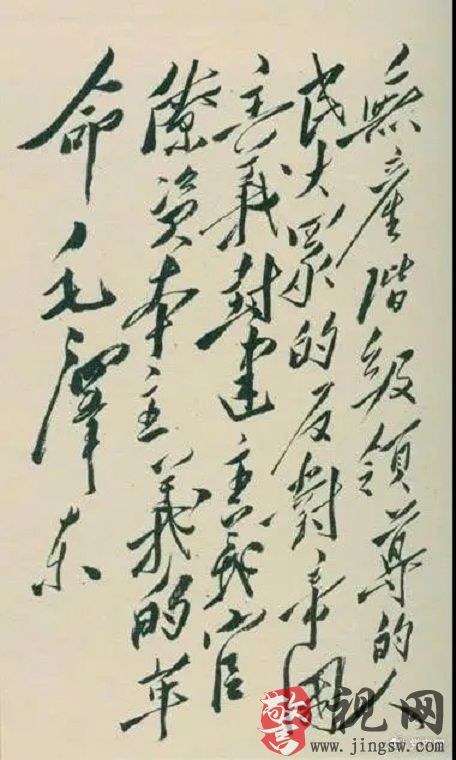 無產階級領導的人
民大眾的反對帝國
主義封建主義官
僚資本主義的革
命毛澤东
警视网
www.jingsw.com